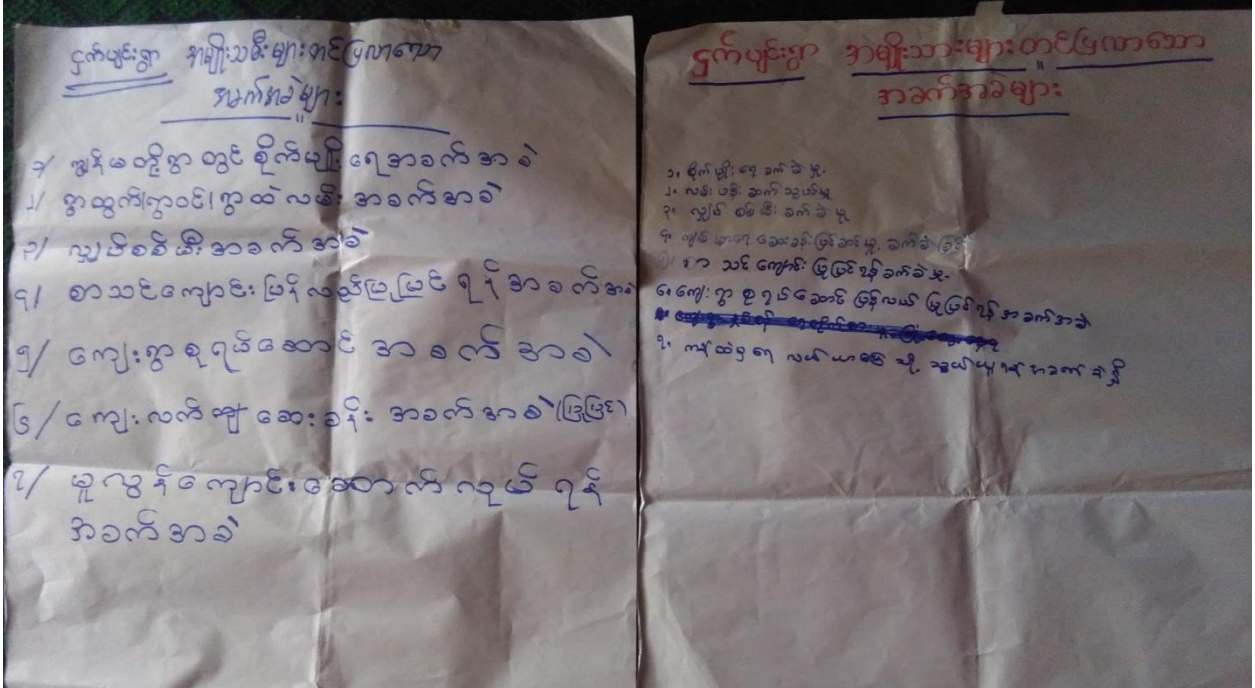 ငှက်ပျင်းရွာ အမျိုးသမီးများတင်ပြလာသော
အခက်အခဲများ
၁/ ကျွန်မတို့ရွာတွင် စိုက်ပျိုးရေအခက်အခဲ
၂/ ရွာထွက်/ရွာဝင်/ရွာထဲလမ်း အခက်အခဲ
၃/ လျှပ်စစ်မီးအခက်အခဲ
၄/ စာသင်ကျောင်းပြန်လည်ပြုပြင်ရန်အခက်အခဲ
၅/ ကျေးရွာစုရပ်ဆောင်အခက်အခဲ
၆/ ကျေးလက်ကျမ္မာဆေးခန်းအခက်အခဲ(ပြုပြင်)
၇/ မူလွန်ကျောင်းဆောက်လုပ်ရန်
အခက်အခဲ
ငှက်ပျင်းရွာ အမျိုးသားများတင်ပြလာသော
အခက်အခဲများ
၁။ စိုက်ပျိုးရေခက်ခဲမှု.
၂။ လမ်းပန်းဆက်သွယ်မှု
၃။ လျှပ်စစ်မီးခက်ခဲမှု
၄။ ဆေးခန်းပြုပြင်မှု. ခက်ခဲခြင်း
၅။ စာသင်ကျောင်းပြုပြင်ရန်ခက်ခဲမှု.
၆။ ကျေးရွာစုရပ်ဆောင်ပြန်လယ်ပြုပြင်ရန်အခက်အခဲ
၇။ လယ်ယာမြေသို့